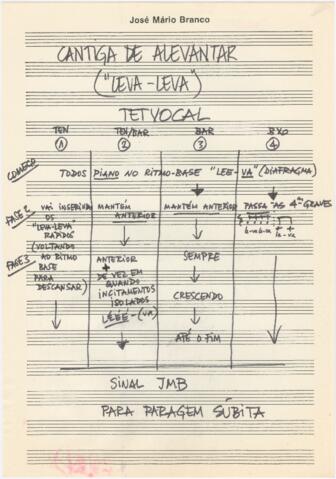 José Mário Branco
CANTIGA DE ALEVANTAR
("LEVA-LEVA")
TETVOCAL
TEN TEN/BAR BAR BXO
1 2 3 4
COMEÇO TODOS PIANO NO RITMO-BASE "LEE-VA" (DIAFRAGMA)
FASE 2 VAI INSERINDO OS "LEVA-LEVA" RÁPIDOS (VOLTANDO AO RITMO BASE PARA DESCANSAR)
MANTÉM ANTERIOR
MANTÉM ANTERIOR
PASSA ÀS 4as GRAVES
le-va le-va le-va
FASE 3
ANTERIOR
+
DE VEZ EM QUANDO INCITAMENTOS ISOLADOS
LEEE-(VA)
SEMPRE
CRESCENDO
ATÉ O FIM
SINAL JMB
PARA PARAGEM SÚBITA